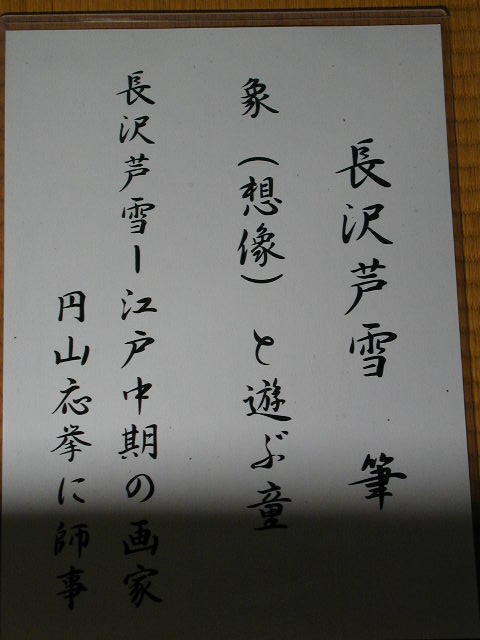 長沢芦雪 筆
象(想像)と遊ぶ童
長沢芦雪ー江戸中期の画家
円山応挙に師事